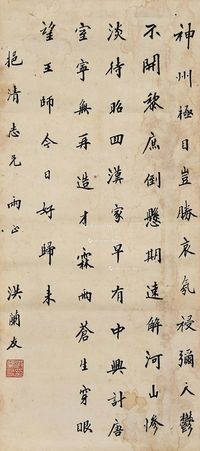 神州極目豈勝哀氛祲彌天鬱
不開黎庶倒懸期速解河山慘
淡待昭回漢家早有中興計唐
室寧無再造才霖雨蒼生穿眼
望王師今日好歸來
挹清志兄雨正
洪蘭友